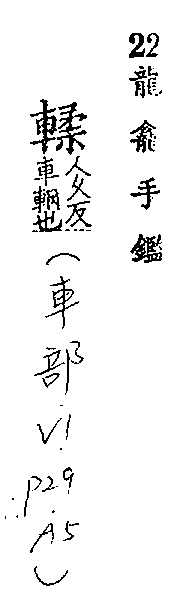 22龍龕手鑑
輮人久反
車輞也
(車部VI.P29.A5)